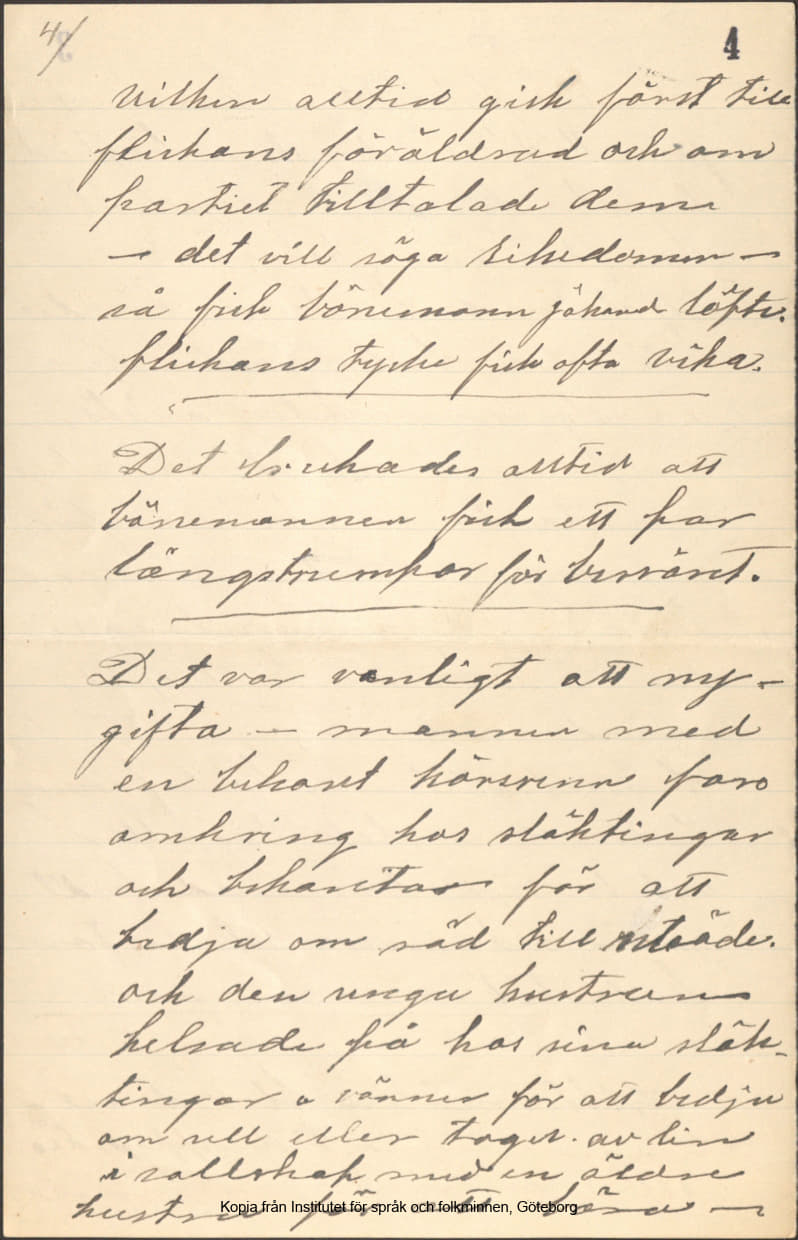 4/
4
vilken alltid gick först till
flickans föräldrar och om
partiet tilltalade dem
– det vill säga rikedomen –
så fick bönemann jakand löfte.
flickans tycke fick ofta vika.
Det brukades alltid att
bönemannen fick ett par
långstrumpor för besväret.
Det var vanligt att ny-
gifta – mannen med
en bekant körsven faro
omkring hos släktingar
och bekanta för att
bedja om säd till utsäde.
och den unga hustrun
helsade på hos sina släk-
tingar o vänner för att bedja
om ull eller taget av lin
i sallskap med en äldre
hustru för att bära –
Kopia från Institutet för språk och folkminnen, Göteborg